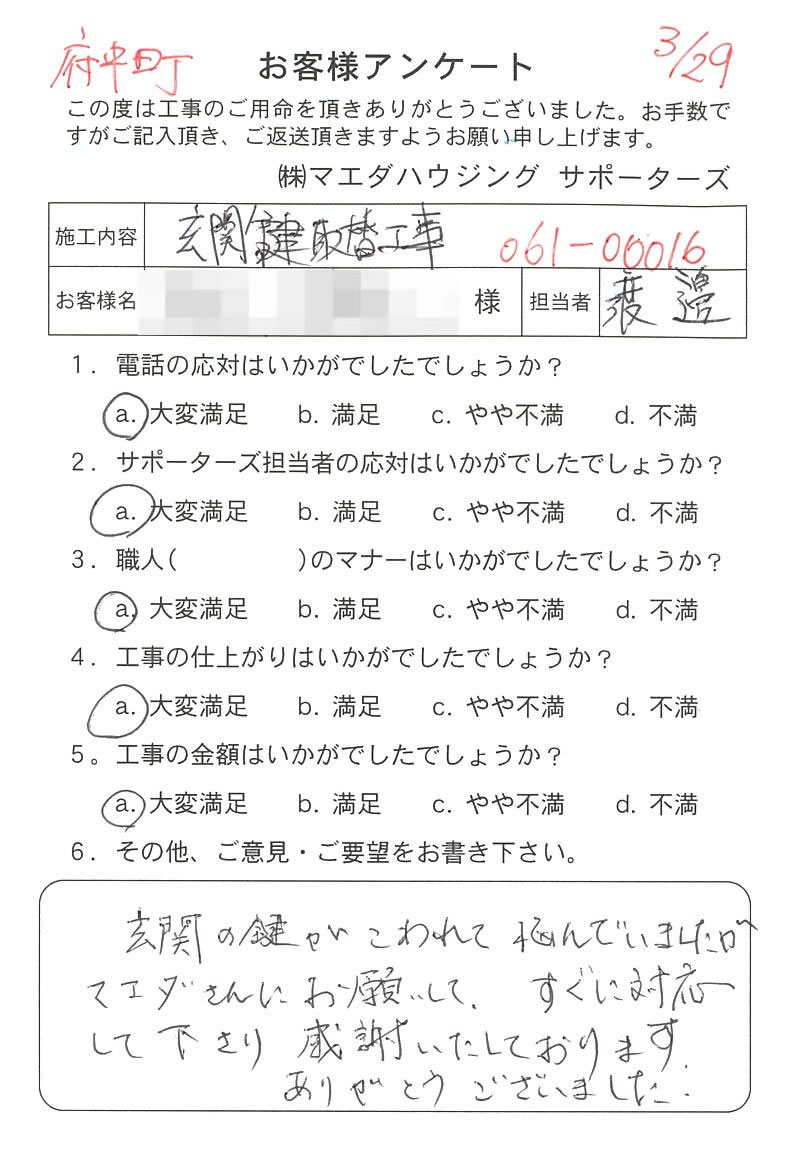 府中町 お客様アンケート 3/29
この度は工事のご用命を頂きありがとうございました。お手数で
すがご記入頂き、ご返送頂きますようお願い申し上げます。
㈱マエダハウジング サポーターズ
施工内容 玄関鍵取替工事 061-00016
お客様名 様 担当者 渡邉
1. 電話の応対はいかがでしたでしょうか?
a. 大変満足 b. 満足 c. やや不満 d. 不満
2. サポーターズ担当者の応対はいかがでしたでしょうか?
a. 大変満足 b. 満足 c. やや不満 d. 不満
3. 職人( )のマナーはいかがでしたでしょうか?
a. 大変満足 b. 満足 c. やや不満 d. 不満
4. 工事の仕上がりはいかがでしたでしょうか?
a. 大変満足 b. 満足 c. やや不満 d. 不満
5。工事の金額はいかがでしたでしょうか?
a. 大変満足 b. 満足 c. やや不満 d. 不満
6. その他、ご意見・ご要望をお書き下さい。
玄関の鍵がこわれて悩んでいましたが
マエダさんにお願いして、すぐに対応
して下さり感謝いたしております
ありがとうございました.